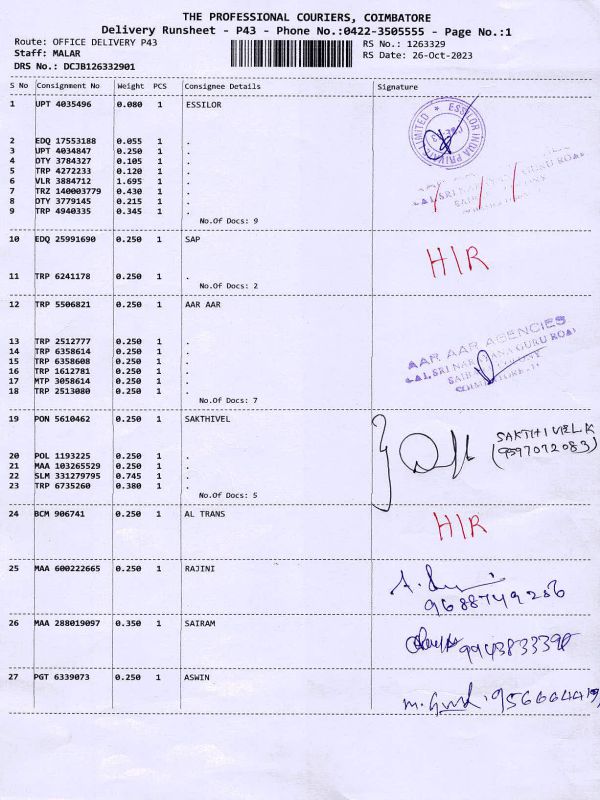 THE PROFESSIONAL COURIERS, COIMBATORE
Delivery Runsheet - P43 - Phone No.:0422-3505555 - Page No.:1
Route: OFFICE DELIVERY P43
Staff: MALAR
DRS No.: DCJB126332901
RS No.: 1263329
RS Date: 26-Oct-2023
S No Consignment No Weight PCS Consignee Details Signature
1 UPT 4035496 0.080 1 ESSILOR
ESSILOR INDIA PRIVATE LIMITED
2 EDQ 17553188 0.055 1 .
3 UPT 4034847 0.250 1 .
4 OTY 3784327 0.105 1 .
5 TRP 4272233 0.120 1 .
6 VLR 3884712 1.695 1 .
7 TRZ 140003779 0.430 1 .
8 OTY 3779145 0.215 1 .
9 TRP 4940335 0.345 1 .
No.Of Docs: 9
10 EDQ 25991690 0.250 1 SAP
HIR
11 TRP 6241178 0.250 1 .
No.Of Docs: 2
12 TRP 5506821 0.250 1 AAR AAR
AAR AAR AGENCIES
SRI NARAYANA GURU ROAD
13 TRP 2512777 0.250 1 .
14 TRP 6358614 0.250 1 .
15 TRP 6358608 0.250 1 .
16 TRP 1612781 0.250 1 .
17 MTP 3058614 0.250 1 .
18 TRP 2513080 0.250 1 .
No.Of Docs: 7
19 PON 5610462 0.250 1 SAKTHIVEL
SAKTHIVEL.K
(9597072083)
20 POL 1193225 0.250 1 .
21 MAA 103265529 0.250 1 .
22 SLM 331279795 0.745 1 .
23 TRP 6735260 0.380 1 .
No.Of Docs: 5
24 BCM 906741 0.250 1 AL TRANS
HIR
25 MAA 600222665 0.250 1 RAJINI
9688749286
26 MAA 288019097 0.350 1 SAIRAM
27 PGT 6339073 0.250 1 ASWIN